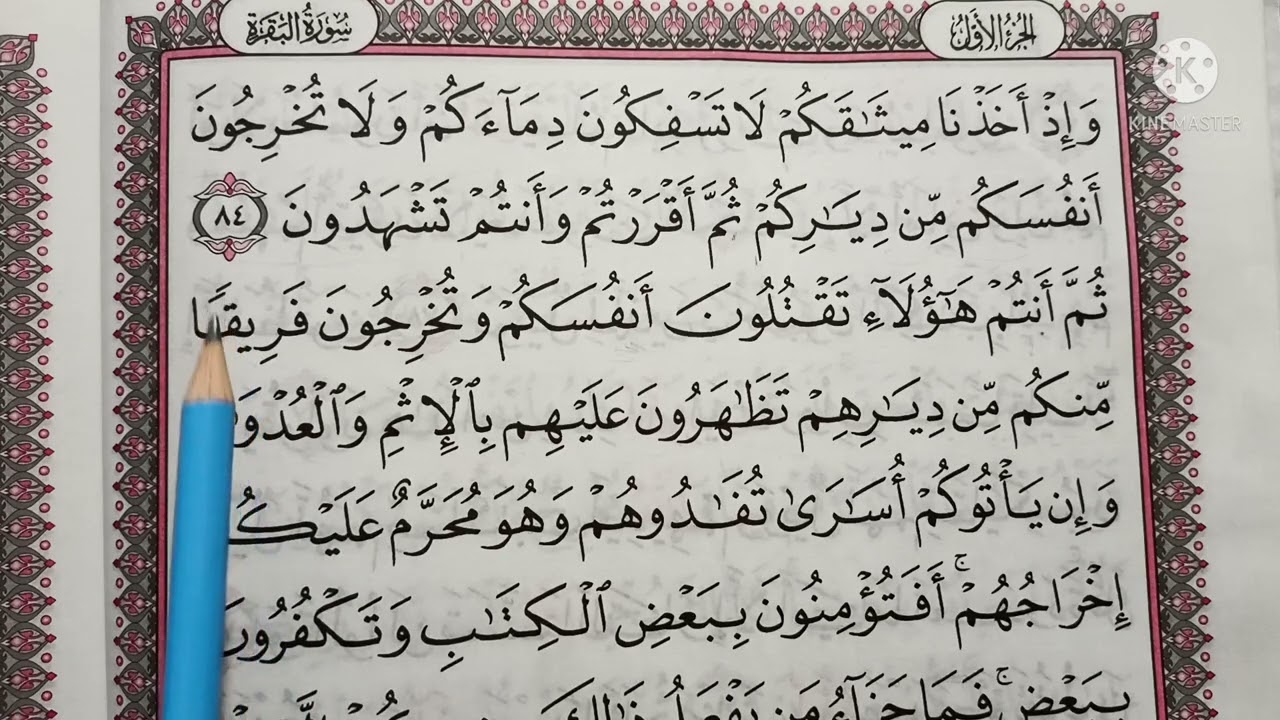 الجزء الأول
سورة البقرة
KINEMASTER
وَإِذْ أَخَذْنَا مِيثَٰقَكُمْ لَا تَسْفِكُونَ دِمَآءَكُمْ وَلَا تُخْرِجُونَ
أَنفُسَكُم مِّن دِيَٰرِكُمْ ثُمَّ أَقْرَرْتُمْ وَأَنتُمْ تَشْهَدُونَ ٨٤
ثُمَّ أَنتُمْ هَٰٓؤُلَآءِ تَقْتُلُونَ أَنفُسَكُمْ وَتُخْرِجُونَ فَرِيقًا
مِّنكُم مِّن دِيَٰرِهِمْ تَظَٰهَرُونَ عَلَيْهِم بِٱلْإِثْمِ
وَإِن يَأْتُوكُمْ أُسَٰرَىٰ تُفَٰدُوهُمْ وَهُوَ مُحَرَّمٌ
إِخْرَاجُهُمْ ۚ أَفَتُؤْمِنُونَ بِبَعْضِ ٱلْكِتَٰبِ
بِبَعْضٍ ۚ فَمَا جَزَآءُ مَن يَفْعَلُ ذَٰلِكَ